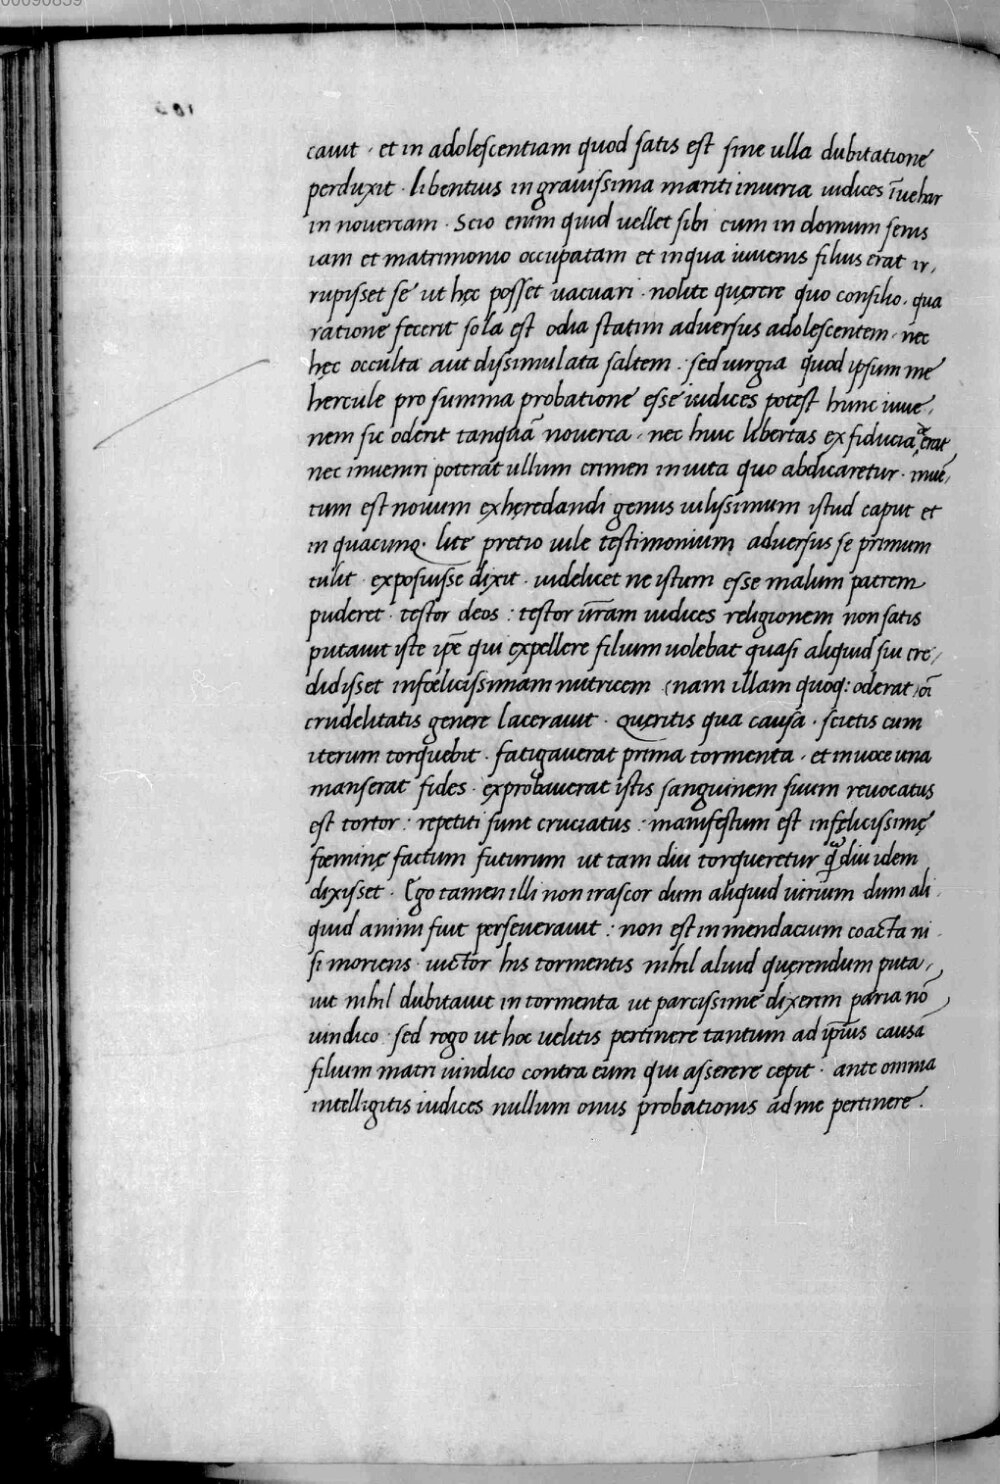 00090859
cauit · et in adolescentiam quod satis est sine ulla dubitatione
perduxit · libentius in grauissima mariti inuria iudices īuehar
in nouercam · Scio enim quid uellet sibi cum in domum senis
iam et matrimonio occupatam et in qua iuuenis filius erat ir,
rupisset se ut hęc posset uacuari · nolite quęrere quo consilio, qua
ratione fecerit sola est odia statim aduersus adolescentem · nec
hęc occulta aut dissimulata saltem : sed iurgia quod ipsum me
hercule pro summa probatione esse iudices potest hunc iuue,
nem sic oderit tanquā nouerca · nec huic libertas ex fiducia erat
nec inueniri poterat ullum crimen in uita quo abdicaretur · inuē,
tum est nouum exhęredandi genus uilissimum istud caput et
in quacunq · lite pretio uile testimonium aduersus se primum
tulit · exposuisse dixit · uidelicet ne istum esse malum patrem
puderet · testor deos : testor ūram iudices religionem non satis
putauit iste ipē qui expellere filium uolebat quasi aliquid sui cre,
didisset infœlicissimam nutricem (nam illam quoq: oderat) oī
crudelitatis genere lacerauit · queritis qua causa · scietis cum
iterum torquebit · fatigauerat prima tormenta · et in uoce una
manserat fides · exprobauerat istis sanguinem suum reuocatus
est tortor : repetiti sunt cruciatus : manifestum est infęlicissimę
fœminę factum futurum ut tam diu torqueretur q̄ diu idem
dixisset · Ego tamen illi non irascor dum aliquid uirium dum ali
quid animi fuit perseuerauit : non est in mendacium coacta ni
si moriens · uictor his tormentis nihil aliud quęrendum puta,
uit nihil dubitauit in tormenta ut parcissime dixerim paria nō
uindico · sed rogo ut hoc uelitis pertinere tantum ad ipīus causā
filium matri uindico contra eum qui asserere cepit · ante omnia
intelligitis iudices nullum onus probationis ad me pertinere ·